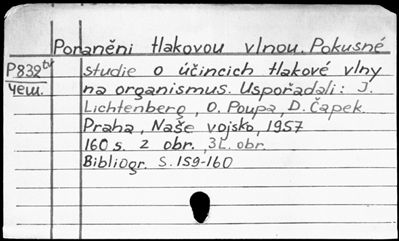 Poraněni tlakovou vlnou. Pokusné
P832 studie o účincích tlakové vlny
Чеш. na organismus. Uspořadali: J.
Lichtenberg, O. Poupa, D. Čapek.
Praha, Naše vojsko, 1957
160 s. z obr., 3 l. obr.
Bibliogr. S. 159-160